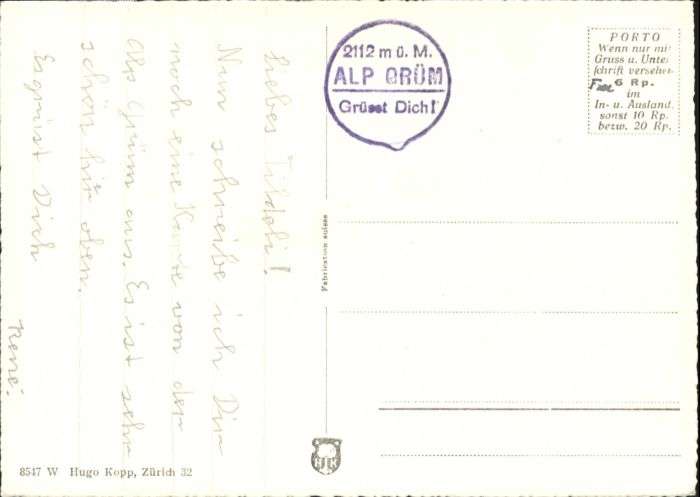 Liebes Titdeli!
Nun schreibe ich Dir
noch eine Karte von der
Alp Grüm aus. Es ist sehr
schön hir oben.
Es grüsst Dich
René.
2112 m ü. M.
ALP GRÜM
Grüsst Dich!
PORTO
Wenn nur mit
Gruss u. Unter
schrift versehen
6 Rp.
im
In- u. Ausland,
sonst 10 Rp.
bezw. 20 Rp.
Fabrication suisse
HK
8547 W Hugo Kopp, Zürich 32